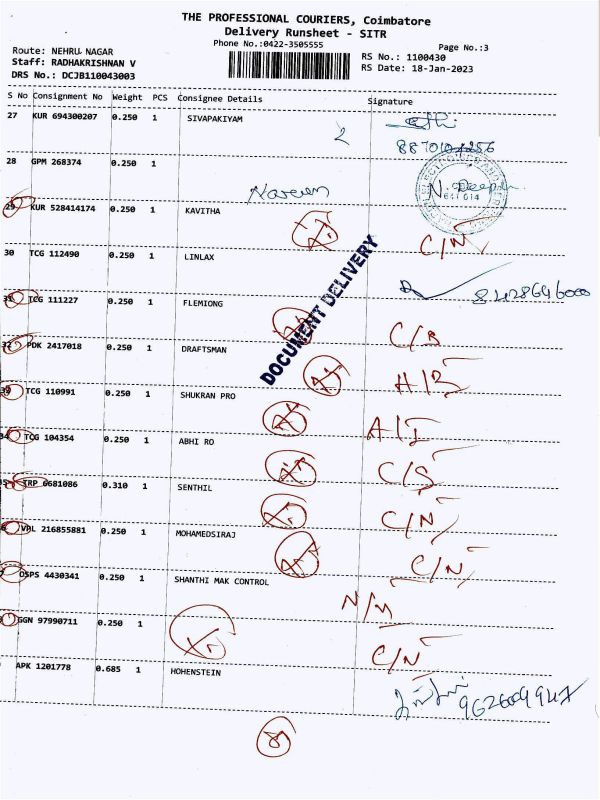 THE PROFESSIONAL COURIERS, Coimbatore
Delivery Runsheet - SITR
Phone No.:0422-3505555
Page No.:3
Route: NEHRU NAGAR
Staff: RADHAKRISHNAN V
DRS No.: DCJB110043003
RS No.: 1100430
RS Date: 18-Jan-2023
S No Consignment No Weight PCS Consignee Details Signature
27 KUR 694300207 0.250 1 SIVAPAKIYAM
28 GPM 268374 0.250 1
Naveen
N. Deepa
29 KUR 528414174 0.250 1 KAVITHA C/N
30 TCG 112490 0.250 1 LINLAX
8428646000
DOCUMENT DELIVERY
TCG 111227 0.250 1 FLEMIONG
32 PDK 2417018 0.250 1 DRAFTSMAN H/B
TCG 110991 0.250 1 SHUKRAN PRO A/I
34 TCG 104354 0.250 1 ABHI RO C/S
TRP 6681086 0.310 1 SENTHIL C/N
VPL 216855881 0.250 1 MOHAMEDSIRAJ C/N
OSPS 4430341 0.250 1 SHANTHI MAK CONTROL N/M
GGN 97990711 0.250 1 C/N
APK 1201778 0.685 1 HOHENSTEIN
9626009947